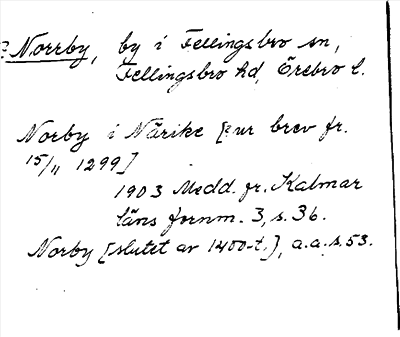 ? Norrby, by i Fellingsbro sn,
Fellingsbro hd, Örebro l.
Norby i Närike [: ur brev fr.
15/11 1299]
1903 Medd. fr. Kalmar
läns fornm. 3, s. 36.
Norby [slutet av 1400-t.], a.a. s. 53.